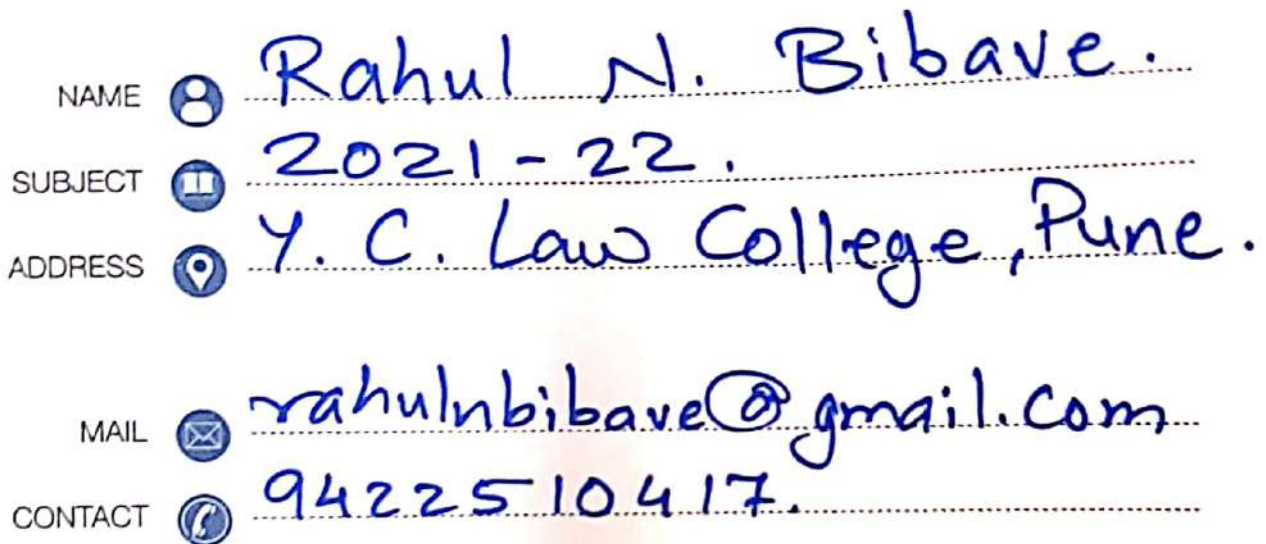 NAME Rahul N. Bibave.
SUBJECT 2021-22.
ADDRESS Y. C. Law College, Pune.
MAIL rahulnbibave@gmail.com
CONTACT 9422510417.